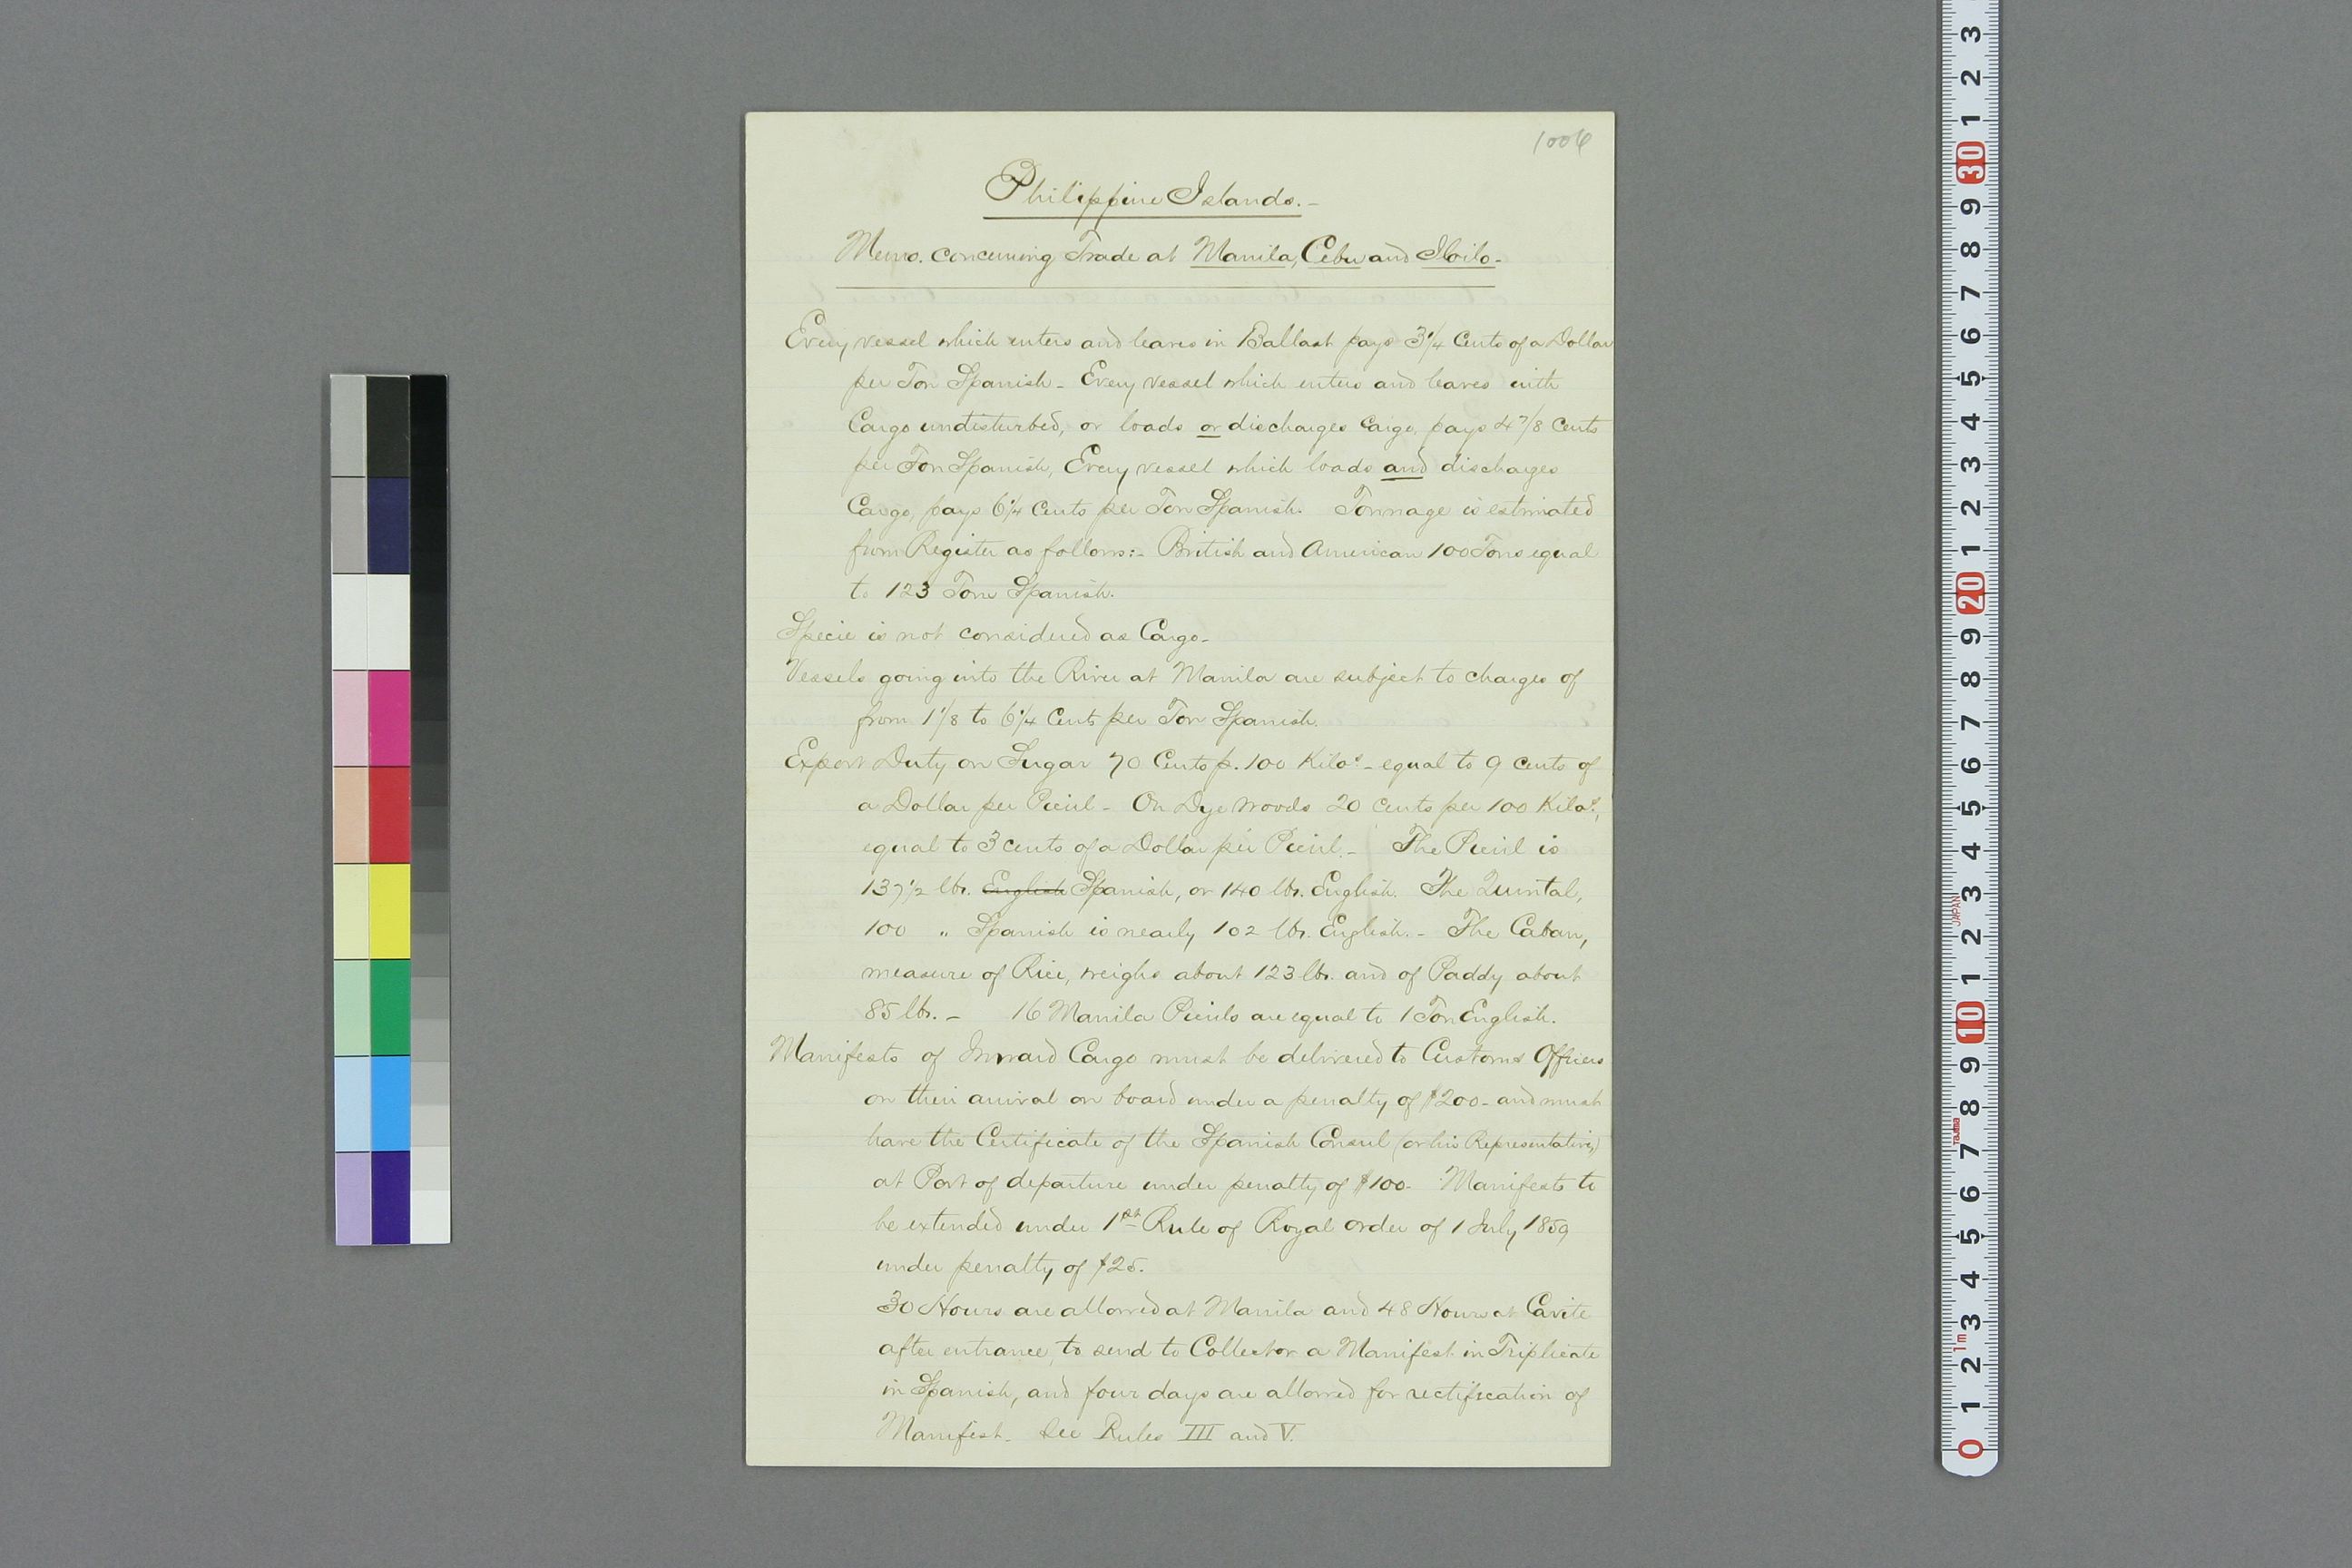 1006
Philippine Islands.-
Memo. concerning Trade at Manila, Cebu and Iloilo-
Every vessel which enters and leaves in Ballast pays 3 1/4 Cents of a Dollar
per Ton Spanish - Every vessel which enters and leaves with
Cargo undisturbed, or loads or discharges Cargo, pays 4 7/8 Cents
per Ton Spanish, Every vessel which loads and discharges
Cargo, pays 6 1/4 Cents per Ton Spanish. Tonnage is estimated
from Register as follows:- British and American 100 Tons equal
to 123 Tons Spanish.
Specie is not considered as Cargo-
Vessels going into the River at Manila are subject to charges of
from 1 1/8 to 6 1/4 Cents per Ton Spanish.
Export Duty on Sugar 70 Cents p. 100 Kilos - equal to 9 cents of
a Dollar per Picul - On Dye woods 20 cents per 100 Kilos,
equal to 3 cents of a Dollar per Picul.- The Picul is
137 1/2 lbs. English Spanish, or 140 lbs. English. The Quintal,
100 " Spanish is nearly 102 lbs. English.- The Caban,
measure of Rice, weighs about 123 lbs. and of Paddy about
85 lbs. - 16 Manila Piculs are equal to 1 Ton English.
Manifests of Inward Cargo must be delivered to Customs Officers
on their arrival on board under a penalty of $200- and must
have the Certificate of the Spanish Consul (or his Representative)
at Port of departure under penalty of $100- Manifests to
be extended under 1st Rule of Royal order of 1 July 1859
under penalty of $25.
30 Hours are allowed at Manila and 48 Hours at Cavite
after entrance, to send to Collector a Manifest in Triplicate
in Spanish, and four days are allowed for rectification of
Manifest. See Rules III and V.
3 2 1 30 9 8 7 6 5 4 3 2 1 20 9 8 7 6 5 4 3 2 1 10 9 8 7 6 5 4 3 2 1 0
JAPAN
Tajima
1m